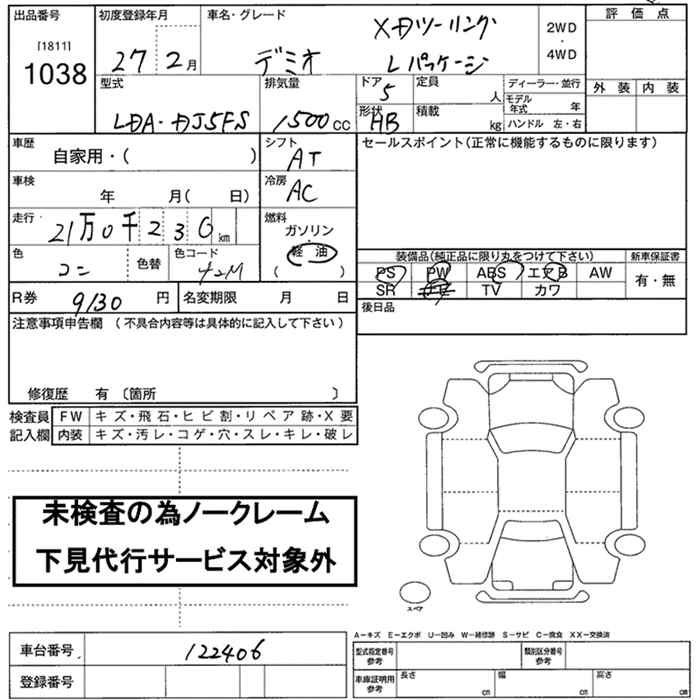 出品番号
[1811]
1038
初度登録年月
27 2月
車名・グレード
XDツーリング
デミオ
Lパッケージ
2WD
・
4WD
評価点
外装 内装
型式
LDA・DJ5FS
排気量
1500cc
ドア 5
形状 HB
定員 人
積載 kg
ディーラー・並行
モデル年式 年
ハンドル 左・右
車歴
自家用・( )
シフト
AT
セールスポイント(正常に機能するものに限ります)
車検
年 月( 日)
冷房
AC
走行
21万0千230km
燃料
ガソリン
・
軽油
( )
色
コン
色替
色コード
42M
装備品(純正品に限り丸をつけて下さい)
新車保証書
PS PW ABS エアB AW
有・無
SR ナビ TV カワ
R券 9130円
名変期限 月 日
後日品
注意事項申告欄(不具合内容等は具体的に記入して下さい)
修復歴 有〔箇所 〕
検査員
記入欄
FW キズ・飛石・ヒビ割・リペア跡・X要
内装 キズ・汚レ・コゲ・穴・スレ・キレ・破レ
未検査の為ノークレーム
下見代行サービス対象外
スペア
A−キズ E−エクボ U−凹み W−補修跡 S−サビ C−腐食 XX−交換済
車台番号 122406
登録番号
型式指定番号
参考
類別区分番号
参考
車庫証明用
参考
長さ cm
幅 cm
高さ cm